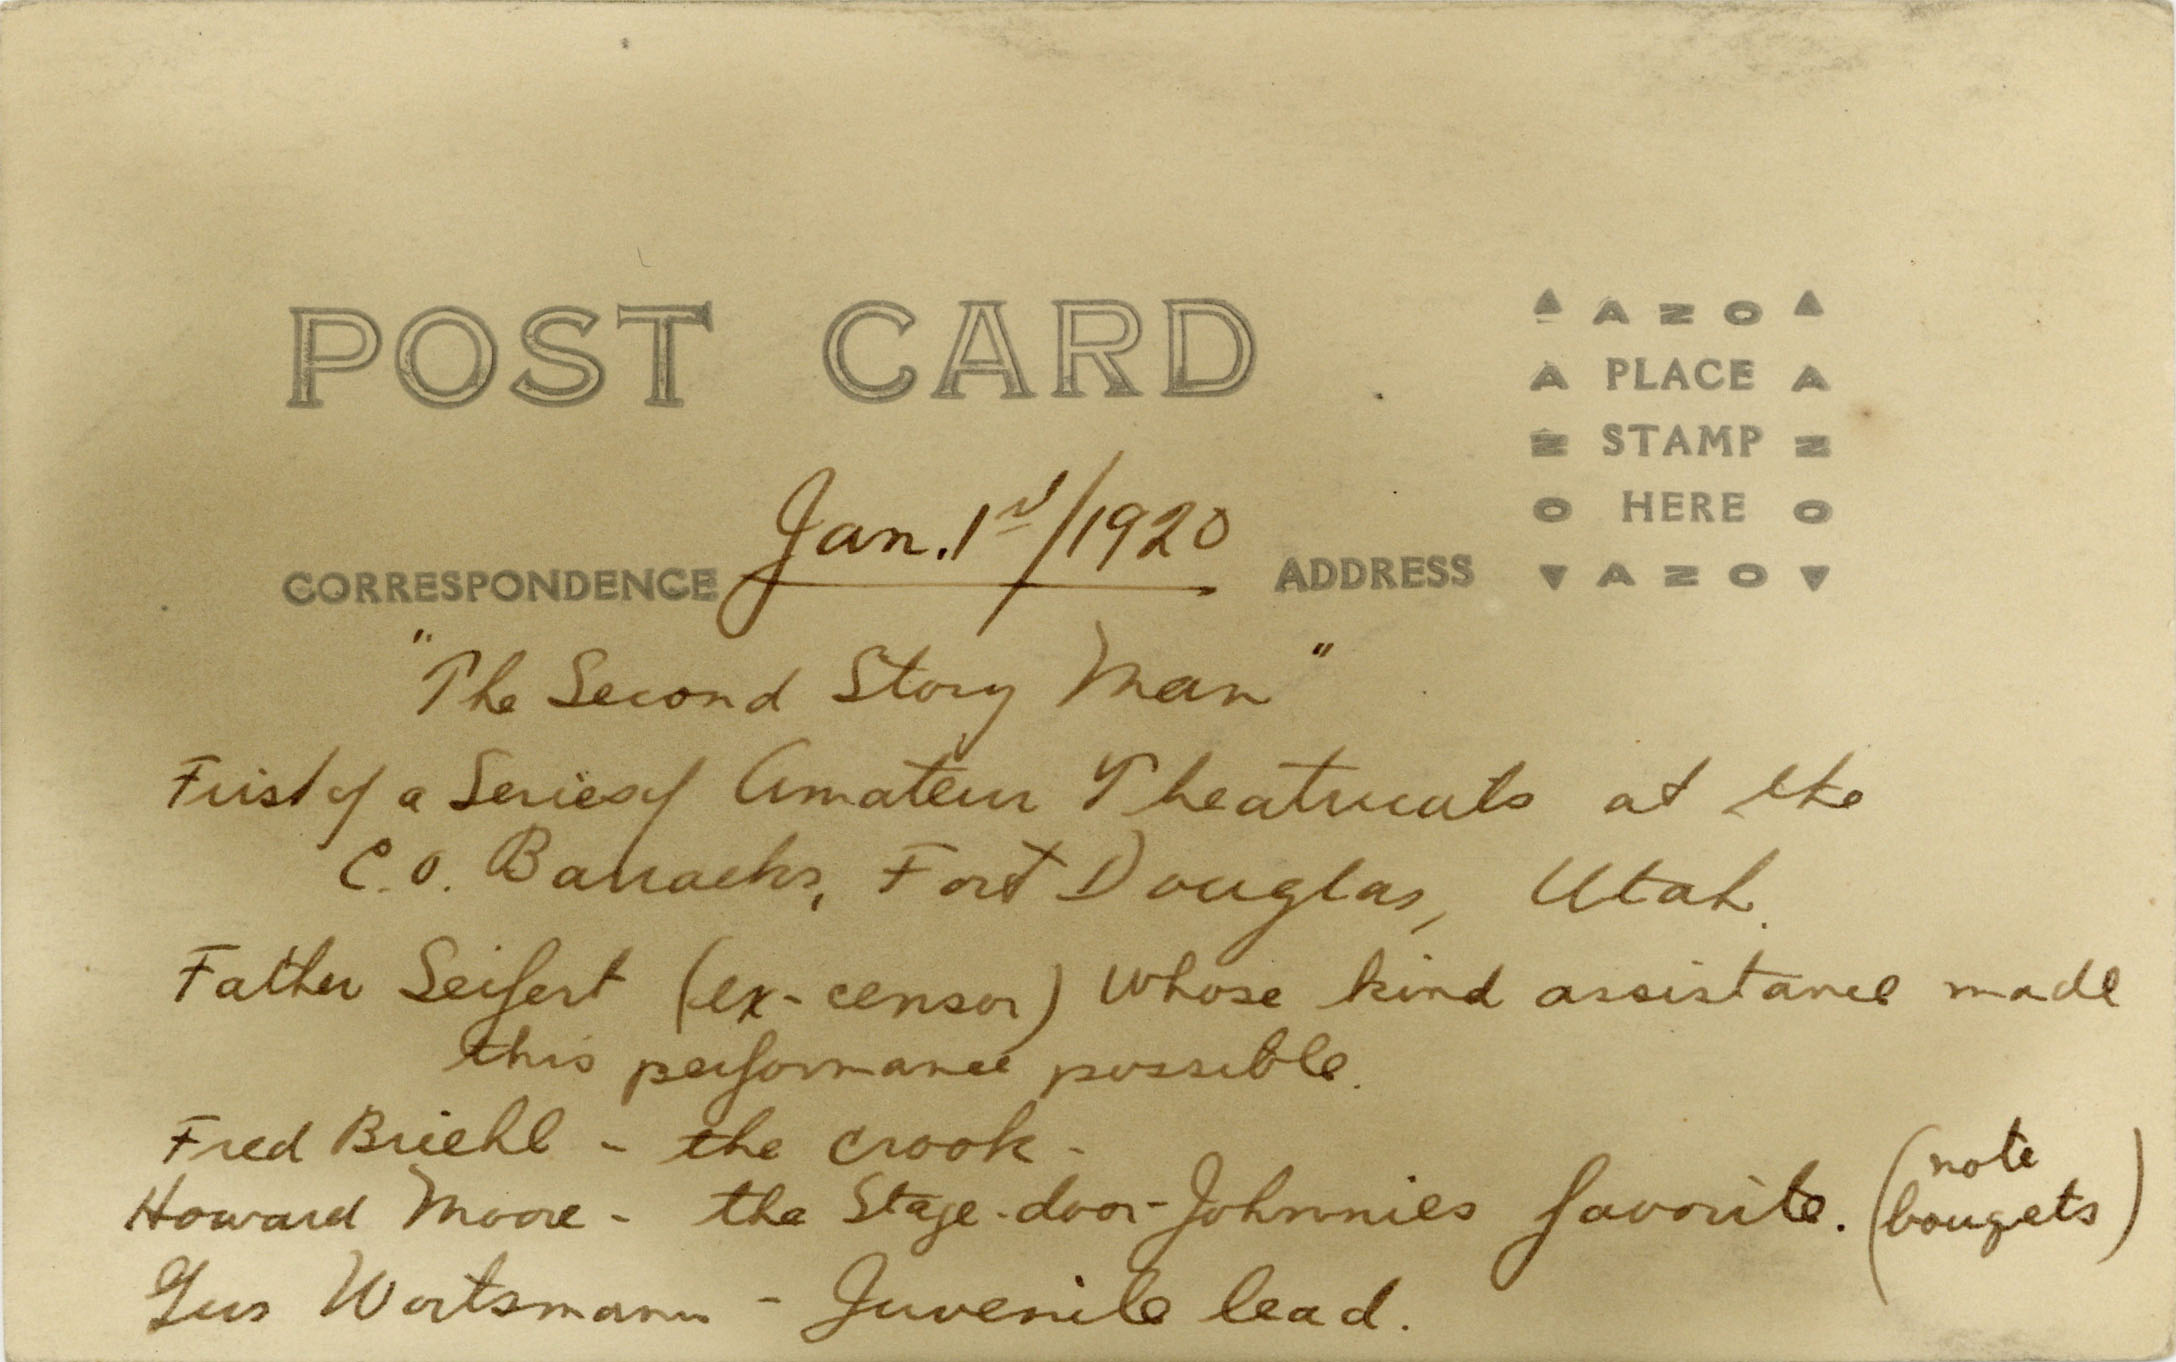 POST CARD
AZO
A PLACE A
N STAMP N
O HERE O
AZO
Jan. 1st/1920
CORRESPONDENCE ADDRESS
"The Second Story Man"
First of a Series of Amateur Theatricals at the
C.O. Barracks, Fort Douglas, Utah.
Father Seifert (ex-censor) whose kind assistance made
this performance possible.
Fred Briehl - the crook -
Howard Moore - the Stage-door-Johnnies favorite. (note
bouqets)
Gus Wortsmann - Juvenile lead.